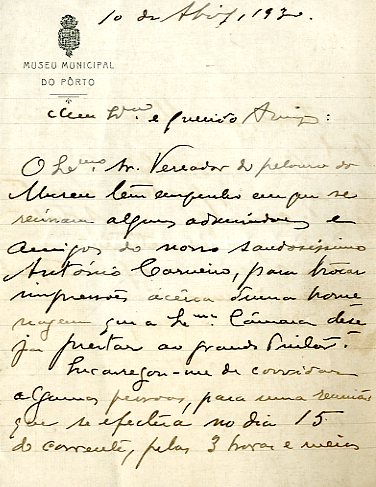 10 de Abril, 1930.
MUSEU MUNICIPAL
DO PÔRTO
Meu Exmo e querido Amigo:
O Exmo. Sr. Vereador do pelouro do
Museu têm empenho em que se
reúnam alguns admiradores e
Amigos do nosso saudosíssimo
António Carneiro, para trocar
impressões ácêrca duma home
nagem que a Exma. Câmara dese
ja prestar ao grande Pintor.
Encarregou-me de convidar
algumas pessoas, para uma reunião
que se efectúa no dia 15
do corrente, pelas 3 horas e meia